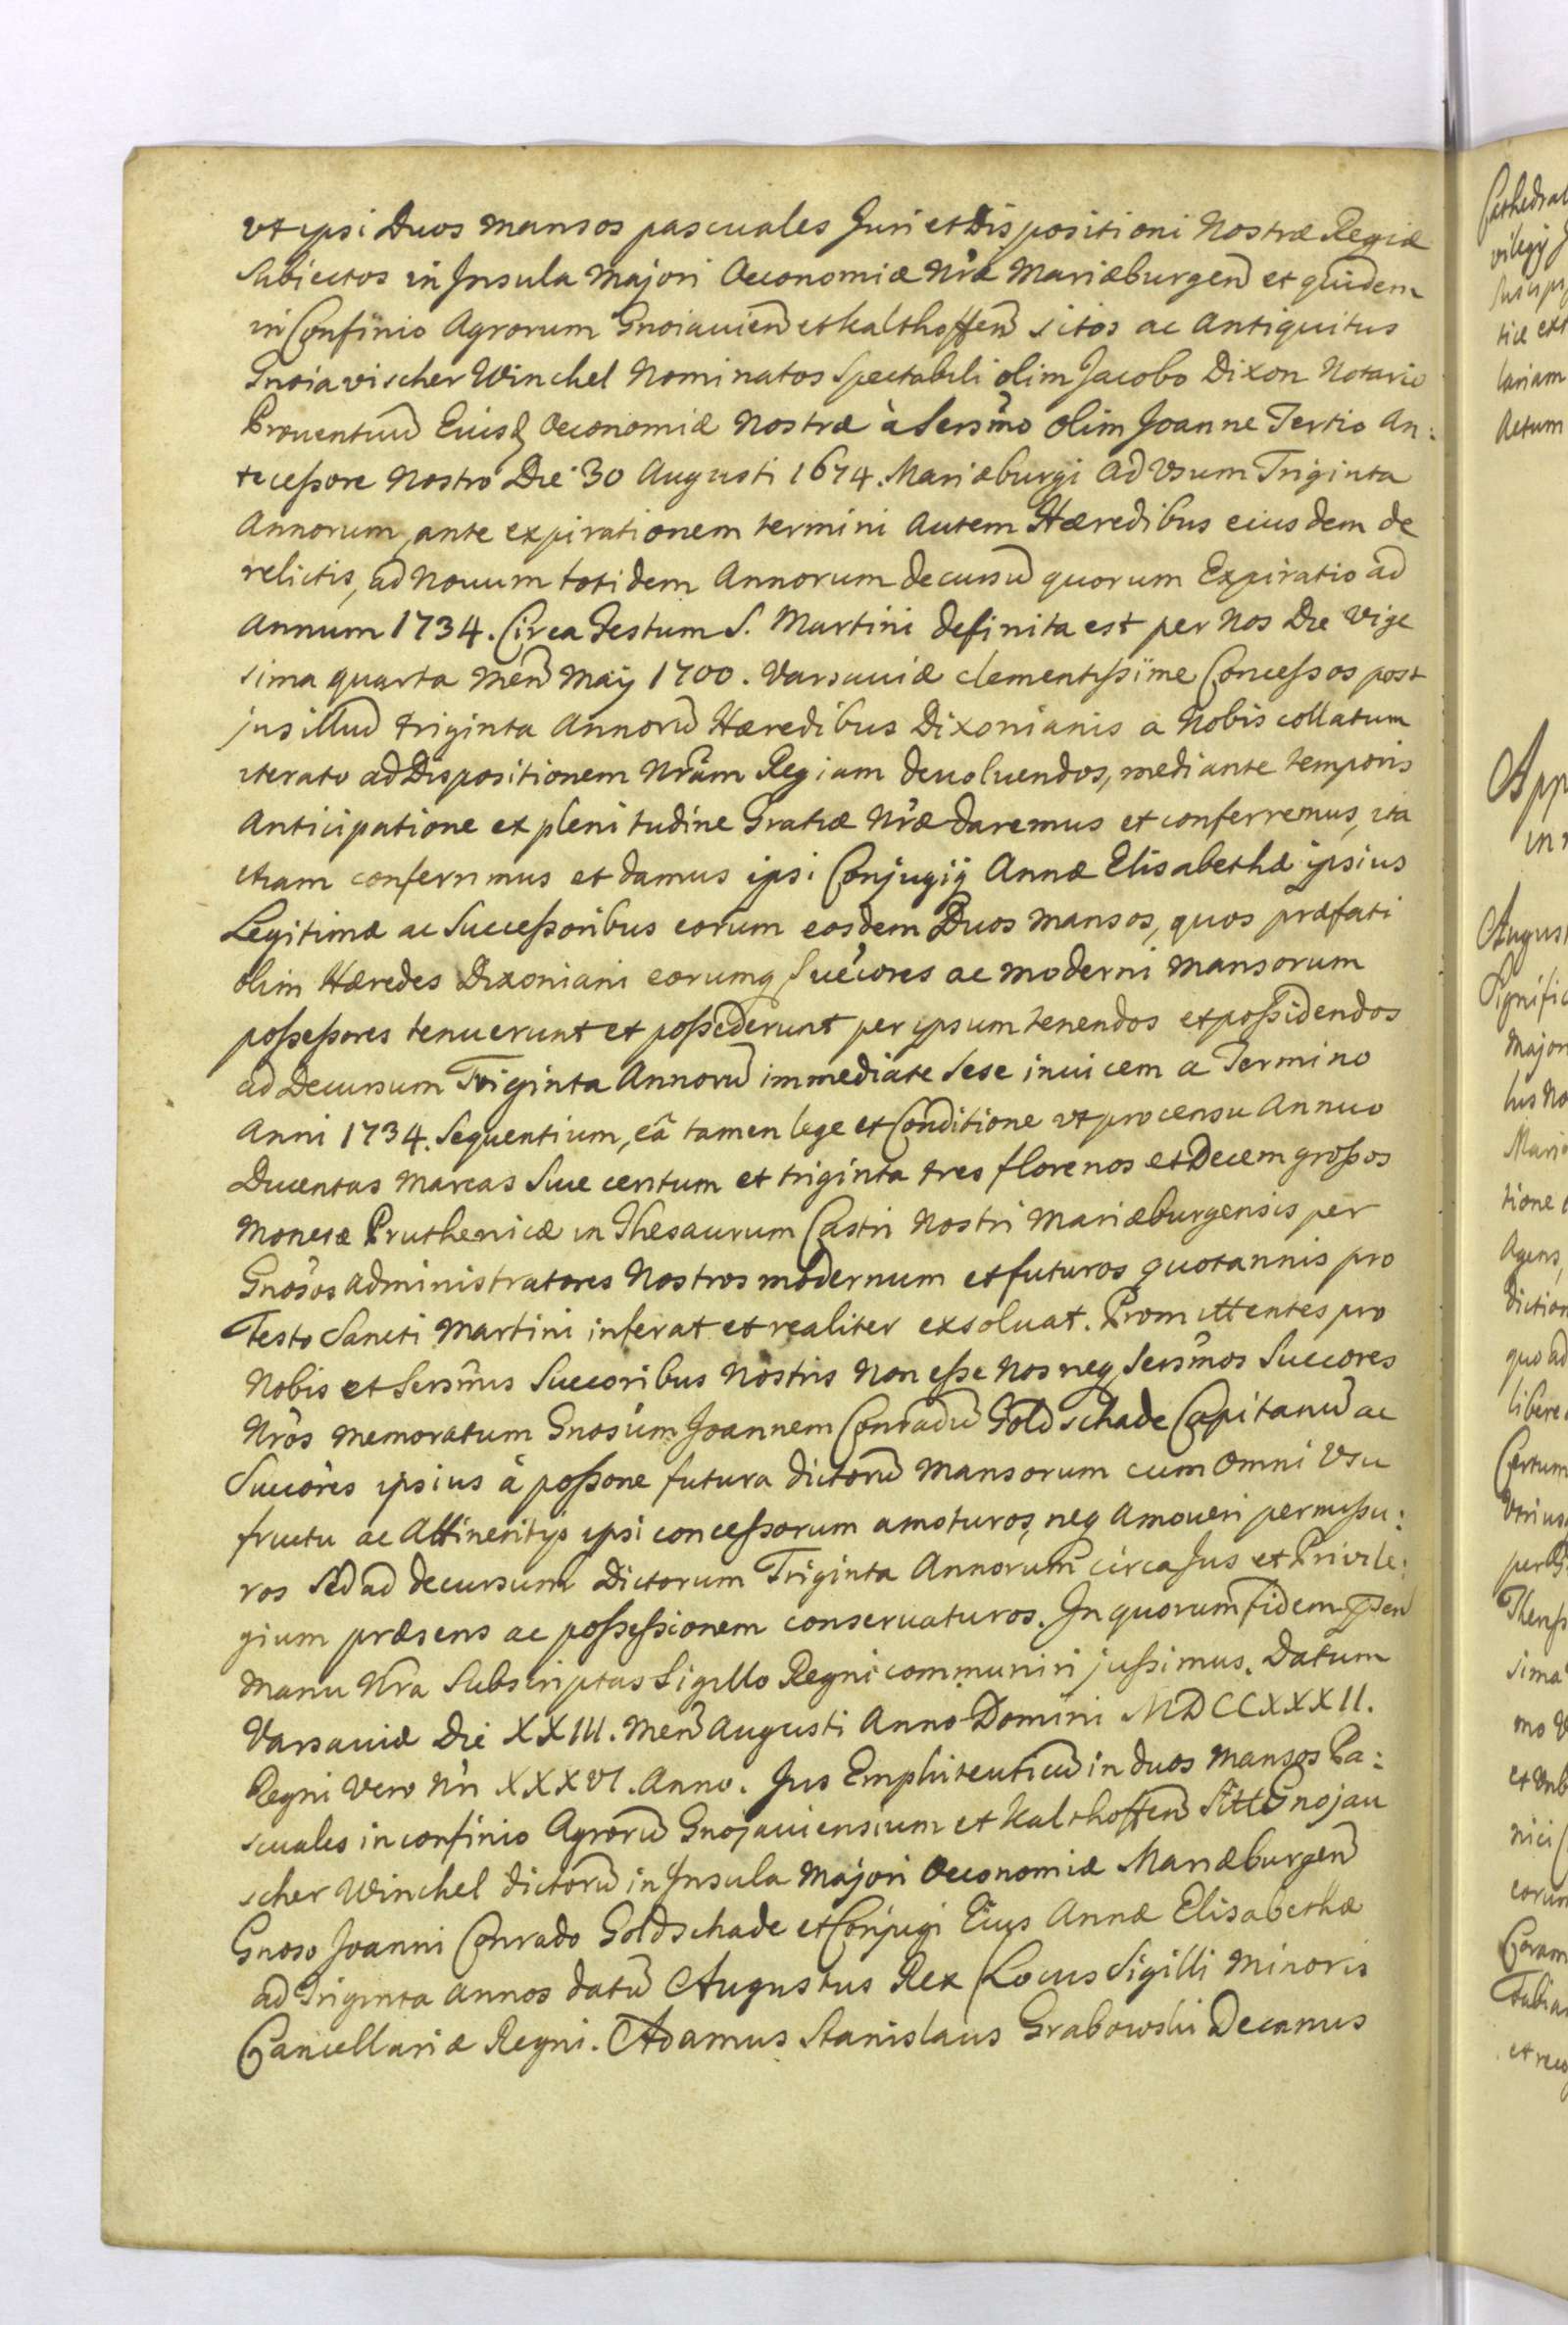 vt ipsi Duos mansos pascuales Juri et Dispositioni Nostræ Regiæ
Subiectos in Jnsula Majori Oeconomiæ Nræ Mariæburgen et quidem
in Confinio Agrorum Gnoiauien et kalthoffen sitos ac Antiquitus
Gnoiavischer Winchel Nominatos Spectabili olim Jacobo Dixon Notario
Prouentuu Eiusq Oeconomiæ Nostræ à Sersmo olim Joanne Tertio An:
tecessore Nostro Die 30 Augusti 1674. Mariæburgi Ad Vsum Triginta
Annorum, ante expirationem termini Autem Hæredibus eiusdem de
relictis, ad Nouum totidem Annorum decursu quorum Expiratio ad
Annum 1734. Circa Festum S. Martini definita est per Nos Die Vige
sima quarta Men Maij 1700. Varsauiæ clementissime Concessos post
jus illud triginta Annoru Hæredibus Dixonianis a Nobis collatum
iterato ad Dispositionem Nram Regiam deuoluendos, mediante temporis
Anticipatione ex plenitudine Gratiæ Nræ daremus et conferremus, ita
etiam conferimus et damus ipsi Conjugij Annæ Elisabethæ ipsius
Legitimæ ac Successoribus eorum eosdem Duos Mansos, quos præfati
olim Hæredes Dixoniani eorumq Succores ac moderni Mansorum
possessores tenuerunt et possederunt per ipsum tenendos et possidendos
ad Decursum Triginta Annoru immediate Sese inuicem a Termino
Anni 1734. Sequentium, eâ tamen lege et Conditione vt pro censu Annuo
Ducentas Marcas Siue centum et triginta tres florenos et Decem grossos
Monetæ Pruthenicæ in Thesaurum Castri Nostri Mariæburgensis per
Gnosos Administratores Nostros modernum et futuros quotannis pro
Festo Sancti Martini inferat et realiter exsoluat. Promittentes pro
Nobis et Sersmis Succoribus Nostris Non esse Nos neq Sersmos Succores
Nros memoratum Gnosum Joannem Conradu Goldschade Capitanu ac
Succores ipsius à possone futura dictoru Mansorum cum Omni Vsu
fructu ac Attinentijs ipsi concessorum amoturos, neq Amoueri permissu:
ros Sed ad decursum Dictorum Triginta Annorum circa Jus et Privile:
gium præsens ac possessionem conseruaturos. Jn quorum fidem pæn
manu Nra Subscriptas Sigillo Regni communiri jussimus. Datum
Varsauiæ Die XXIII. Men Augusti Anno Domini MDCCXXXII.
Regni Vero Nri XXXVI. Anno. Jus Emphiteuticu in duos Mansos Pa:
scuales in confinio Agroru Gnojauiensium et Kalthoffen Sitt Gnojau
scher Winchel dictoru in Jnsula Majori Oeconomiæ Mariæburgen
Gnoso Joanni Conrado Goldschade et Conjugi Eius Annæ Elisabethæ
ad Triginta Annos datu Augustus Rex (Locus Sigilli Minoris
Cancellariæ Regni. Adamus Stanislaus Grabowski Decanus